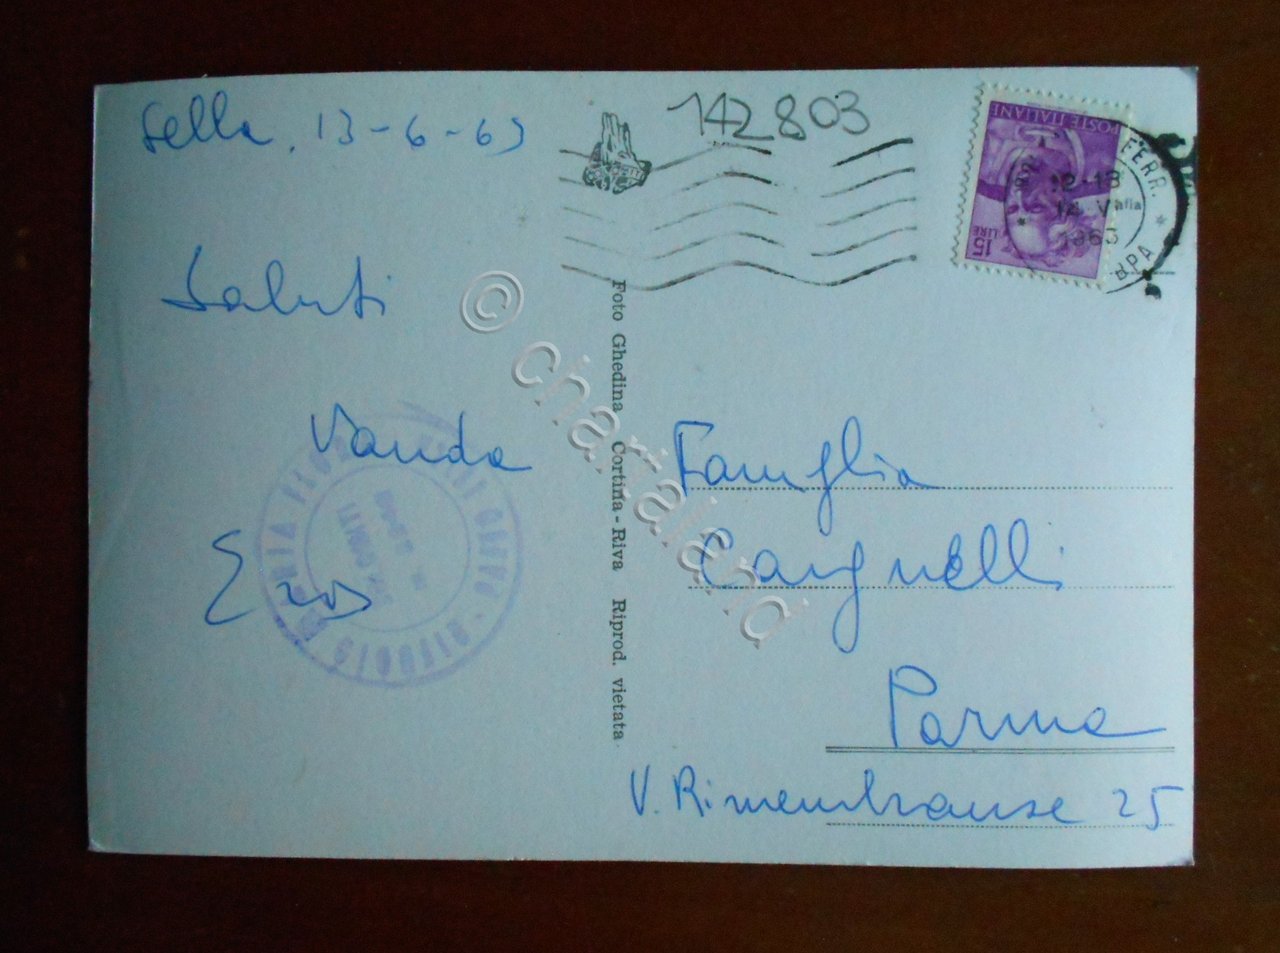 Sella, 13-6-63
142803
POSTE ITALIANE
15 LIRE
FERR.
12-13
14 V
1963
Saluti
Vanda
Eros
Foto Ghedina Cortina - Riva Riprod. vietata
Famiglia
Cargnelli
Parma
V. Rimembranze 25
© chartaland